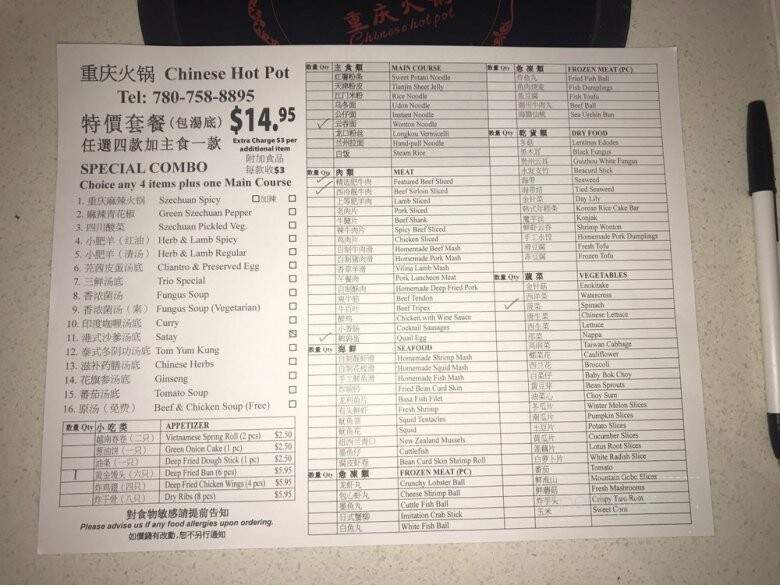 重庆火锅
Chinese hot pot
重庆火锅 Chinese Hot Pot
Tel: 780-758-8895
特價套餐(包湯底) $14.95
任選四款加主食一款
Extra Charge $3 per additional item
附加食品
每款收$3
SPECIAL COMBO
Choice any 4 items plus one Main Course
1. 重庆麻辣火锅 Szechuan Spicy □加辣 □
2. 麻辣青花椒 Green Szechuan Pepper □
3. 四川酸菜 Szechuan Pickled Veg. □
4. 小肥羊(红油) Herb & Lamb Spicy □
5. 小肥羊(清汤) Herb & Lamb Regular □
6. 芫茜皮蛋汤底 Cliantro & Preserved Egg □
7. 三鲜汤底 Trio Special □
8. 香浓菌汤 Fungus Soup □
9. 香浓菌汤(素) Fungus Soup (Vegetarian) □
10. 印度咖喱汤底 Curry □
11. 港式沙爹汤底 Satay ☒
12. 泰式冬阴功汤底 Tom Yum Kung □
13. 滋补药膳汤底 Chinese Herbs □
14. 花旗参汤底 Ginseng □
15. 番茄汤底 Tomato Soup □
16. 原汤(免费) Beef & Chicken Soup (Free) □
數量 Qty 小吃類 APPETIZER
越南春卷(二只) Vietnamese Spring Roll (2 pcs) $2.50
葱油饼(一只) Green Onion Cake (1 pc) $2.50
油条(一只) Deep Fried Dough Stick (1 pc) $2.50
1 黄金馒头(六只) Deep Fried Bun (6 pcs) $5.95
炸鸡翅(四只) Deep Fried Chicken Wings (4 pcs) $5.95
炸干骨(八只) Dry Ribs (8 pcs) $5.95
對食物敏感請提前告知
Please advise us if any food allergies upon ordering.
如價錢有改動,恕不另行通知
數量 Qty 主食類 MAIN COURSE
红薯粉条 Sweet Potato Noodle
天津粉皮 Tianjin Sheet Jelly
江门米粉 Rice Noodle
乌冬面 Udon Noodle
公仔面 Instant Noodle
✓ 云吞面 Wonton Noodle
龙口粉丝 Longkou Vermicelli
兰州拉面 Hand-pull Noodle
白饭 Steam Rice
數量 Qty 肉類 MEAT
✓ 精选肥牛肉 Featured Beef Sliced
✓ 西冷靓牛肉 Beef Sirloin Sliced
上等肥羊肉 Lamb Sliced
老肉片 Pork Sliced
牛腱片 Beef Shank
辣牛肉片 Spicy Beef Sliced
鸡肉片 Chicken Sliced
自制牛肉滑 Homemade Beef Mash
自制猪肉滑 Homemade Pork Mash
香草羊滑 Vilina Lamb Mash
午餐肉 Pork Luncheon Meat
自制酥肉 Homemade Deep Fried Pork
爽牛筋 Beef Tendon
牛百叶 Beef Tripes
醉鸡 Chicken with Wine Sauce
小香肠 Cocktail Sausages
✓ 鹌鹑蛋 Quail Egg
數量 Qty 海鮮 SEAFOOD
自制靓虾滑 Homemade Shrimp Mash
自制花枝滑 Homemade Squid Mash
手工鲜鱼滑 Homemade Fish Mash
Fried Bean Curd Skin
龙利鱼片 Basa Fish Filet
有头鲜虾 Fresh Shrimp
鱿鱼须 Squid Tentacles
鱿鱼花 Squid
纽西兰青口 New Zealand Mussels
墨鱼仔 Cuttlefish
腐皮虾卷 Bean Curd Skin Shrimp Roll
數量 Qty 急凍類 FROZEN MEAT (PC)
龙虾丸 Crunchy Lobster Ball
包心虾丸 Cheese Shrimp Ball
墨鱼丸 Cuttle Fish Ball
日式蟹柳 Imitation Crab Stick
白鱼丸 White Fish Ball
數量 Qty 急凍類 FROZEN MEAT (PC)
炸鱼丸 Fried Fish Ball
鱼肉烧麦 Fish Dumplings
鱼豆腐 Fish Tofu
潮州牛肉丸 Beef Ball
海胆仙桃 Sea Urchin Bun
數量 Qty 乾貨類 DRY FOOD
冬菇 Lentinus Edodes
黑木耳 Black Fungus
贵州云耳 Guizhou White Fungus
水发支竹 Beacurd Stick
海带 Seaweed
海带结 Tied Seaweed
金针菜 Day Lily
韩式年糕条 Korean Rice Cake Bar
魔芋丝 Konjak
鲜虾云吞 Shrimp Wonton
手工水饺 Homemade Pork Dumplings
滑豆腐 Fresh Tofu
冻豆腐 Frozen Tofu
數量 Qty 蔬菜 VEGETABLES
金针菇 Enokitake
西洋菜 Watercress
✓ 菠菜 Spinach
唐生菜 Chinese Lettuce
西生菜 Lettuce
Nappa
Taiwan Cabbage
椰菜花 Cauliflower
西兰花 Broccoli
白菜仔 Baby Bok Choy
黄豆芽 Bean Sprouts
油菜心 Choy Sum
冬瓜片 Winter Melon Slices
南瓜片 Pumpkin Slices
土豆片 Potato Slices
黄瓜片 Cucumber Slices
莲藕片 Lotus Root Slices
白萝卜片 White Radish Slice
番茄 Tomato
鲜淮山 Mountain Gobo Slices
鲜蘑菇 Fresh Mushrooms
炸芋头 Crispy Taro Root
玉米 Sweet Corn